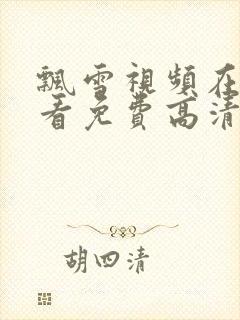 飄雪視頻在
看免費高清
胡四清